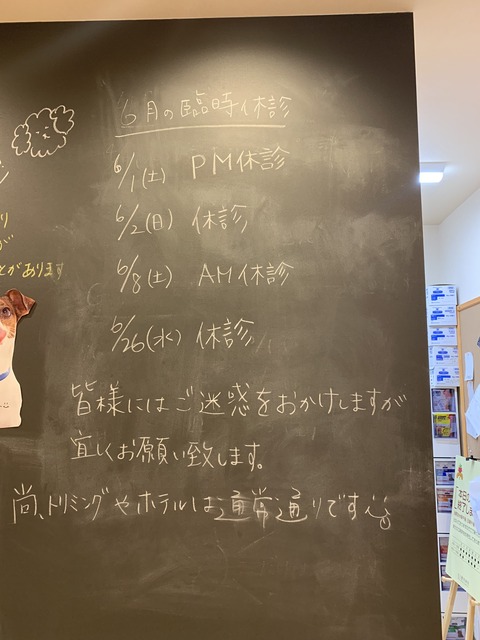 6月の臨時休診
6/1(土) PM休診
6/2(日) 休診
6/8(土) AM休診
6/26(水) 休診
皆様にはご迷惑をおかけしますが
宜しくお願い致します。
尚、トリミングやホテルは通常通りです
り
が
とがあります
本日は
終了しま